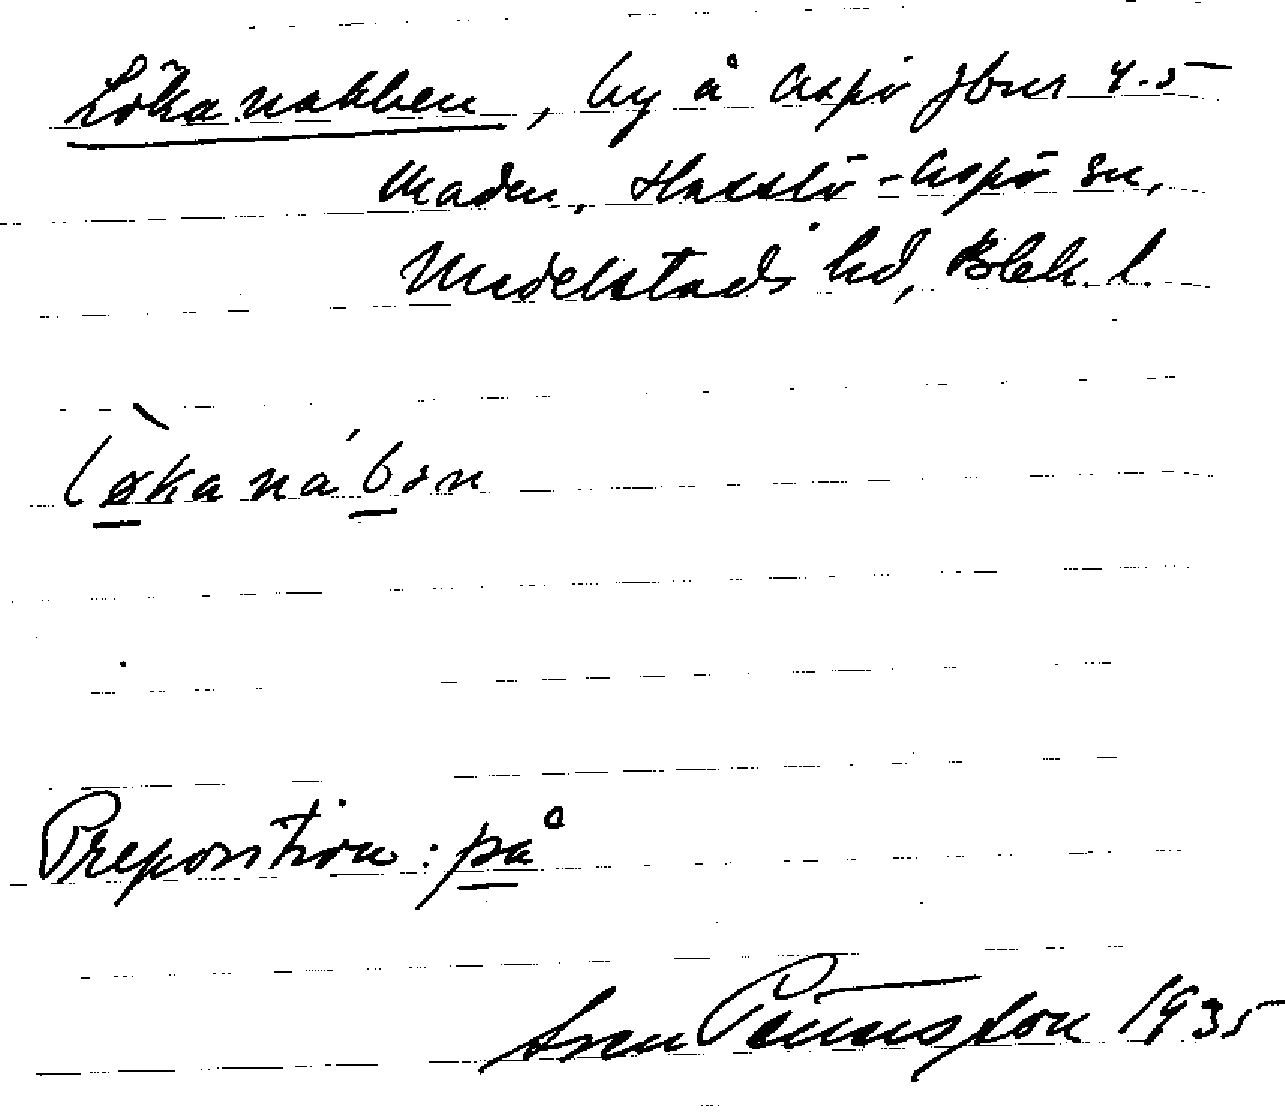 Lökanabben, by å Aspö jbnr 4-5
Maden, Hasslö-Aspö sn,
Medelstads hd, Blek. l.
lø̀kanábən
Preposition: på
Sven Pettersson 1935